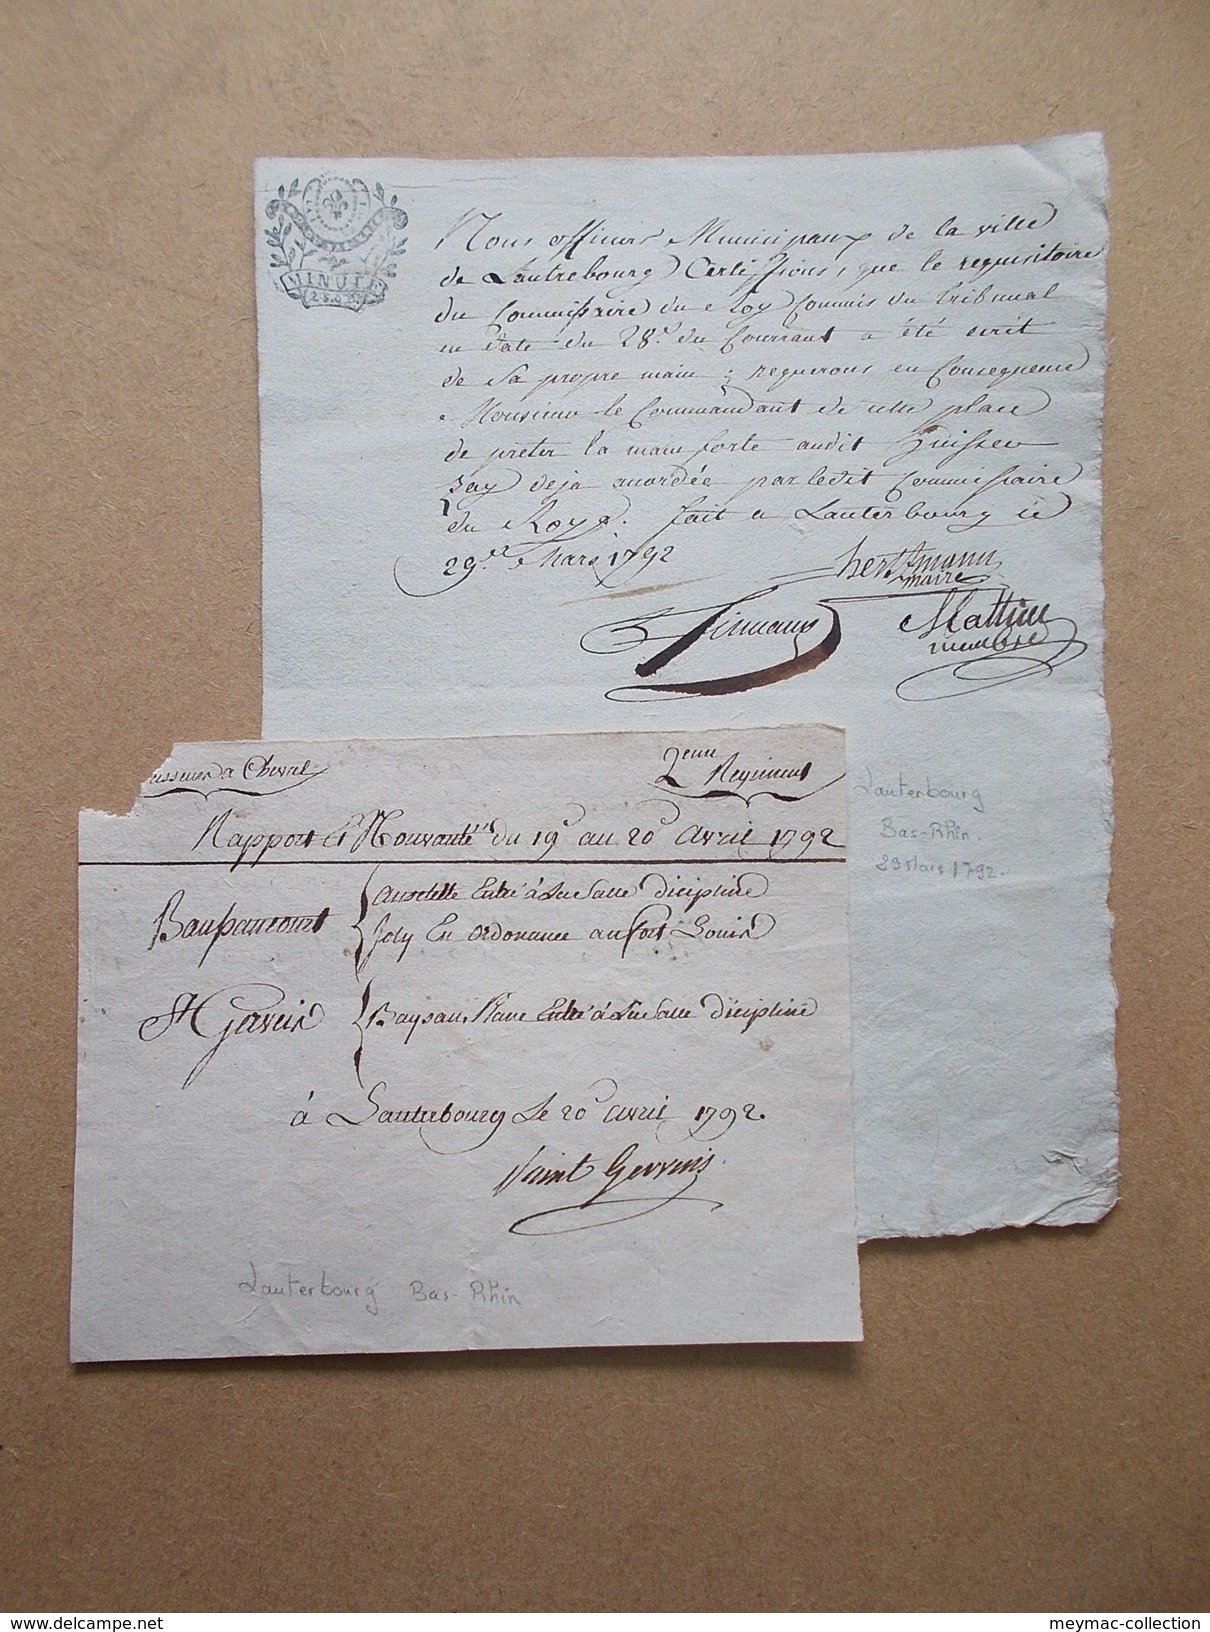 MINUTE
2.S.9.D
Nous officiers Municipaux de la ville
de Lautrebourg Certiffions, que le requisitoire
du Commissaire du Roy Commis du Tribunal
en date du 28.e du Courrant a été écrit
de sa propre main ; requerons en Consequence
Monsieur le Commandant de cette place
de prêter la main forte audit huissier
deja accordée par ledit Commissaire
du Roy. fait a Lauterbourg ce
29.e Mars 1792
herttmann
maire
Mattieu
membre
Lauterbourg
Bas-Rhin.
29 Mars 1792.
asseurs a Cheval
2eme
Regiment
Rapport Et Nouvauté du 19e au 20e avril 1792
Baupaucourt
Entré à La Salle dicipline
Joly En ordonance au fort Louis
St Gervais
Entré à La Salle dicipline
à Lauterbourg Le 20e avril 1792.
Saint Gervais
Lauterbourg Bas-Rhin
meymac-collection